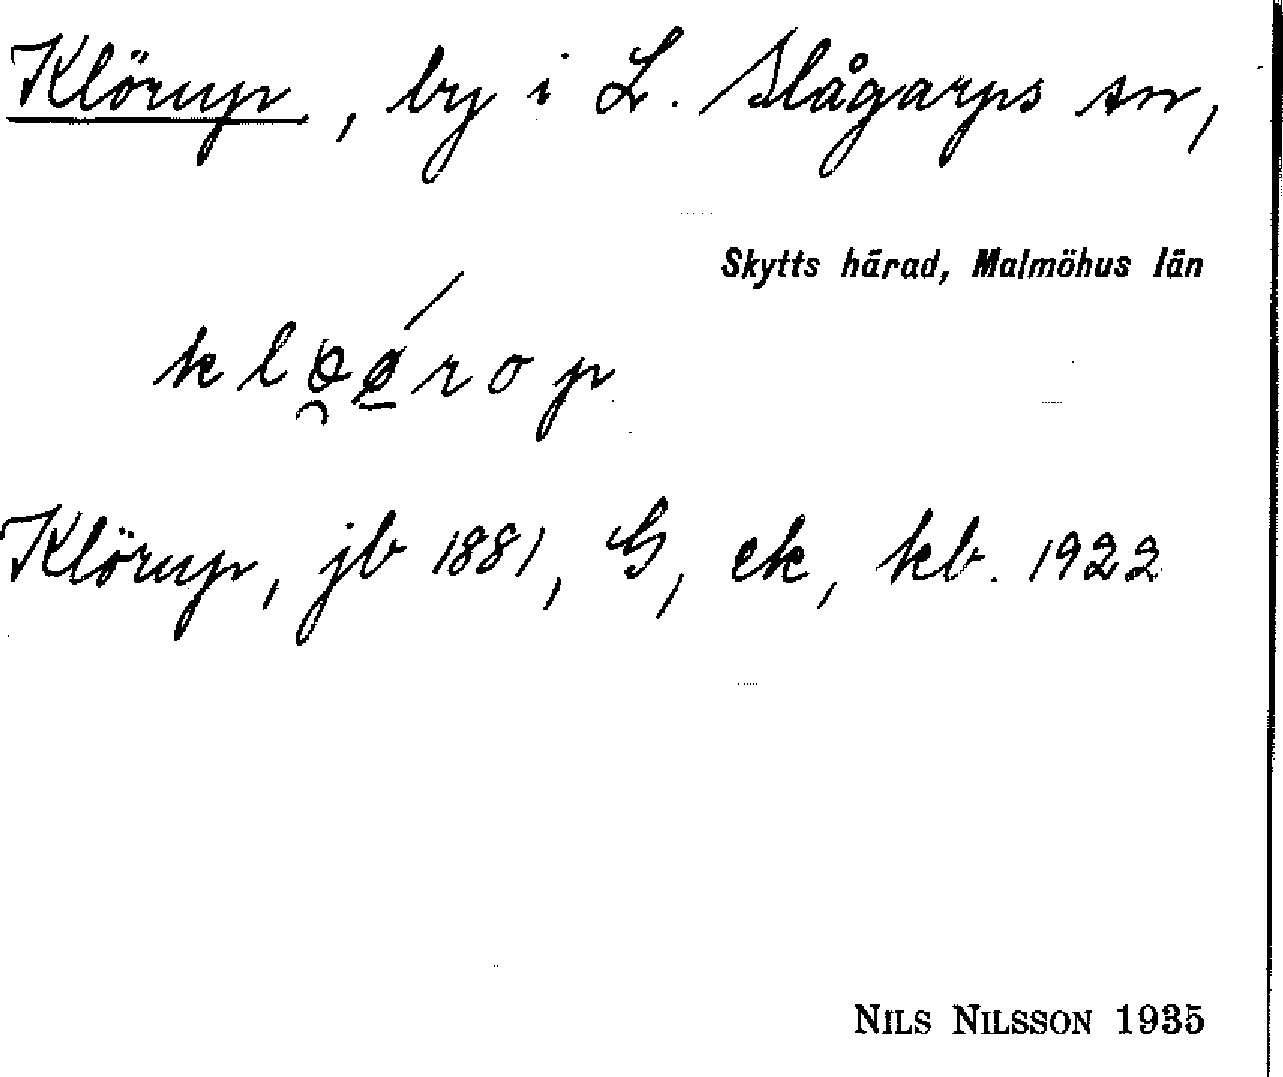 Klörup, by i L. Slågarps sn,
Skytts härad, Malmöhus län
Klörup, jb 1881, G, ek, kb. 1922
NILS NILSSON 1935